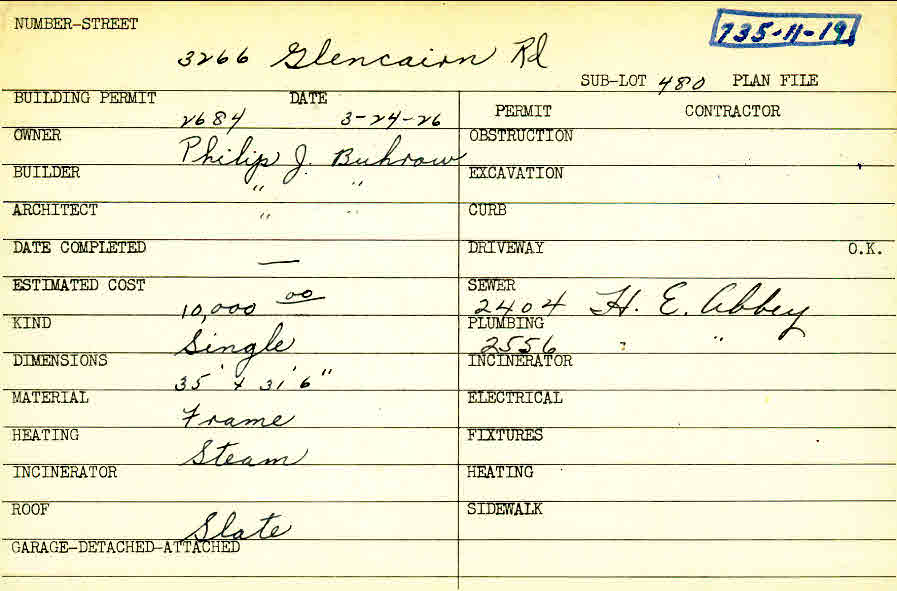 NUMBER-STREET
735-11-19
3266 Glencairn Rd
SUB-LOT 480 PLAN FILE
BUILDING PERMIT DATE
2684 3-24-26
PERMIT CONTRACTOR
OWNER
Philip J. Buhrow
OBSTRUCTION
BUILDER
" "
EXCAVATION
ARCHITECT
" "
CURB
DATE COMPLETED
—
DRIVEWAY O.K.
ESTIMATED COST
10,000 00
SEWER
2404 H. E. Abbey
KIND
Single
PLUMBING
2556 " "
DIMENSIONS
35' x 31' 6"
INCINERATOR
MATERIAL
Frame
ELECTRICAL
HEATING
Steam
FIXTURES
INCINERATOR
HEATING
ROOF
Slate
SIDEWALK
GARAGE-DETACHED-ATTACHED